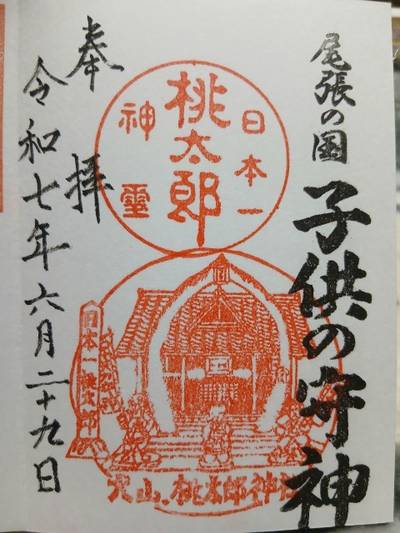 尾張の国
子供の守神
日本一
桃太郎
神霊
日本一桃太郎
犬山.桃太郎神社
奉拝
令和七年六月二十九日